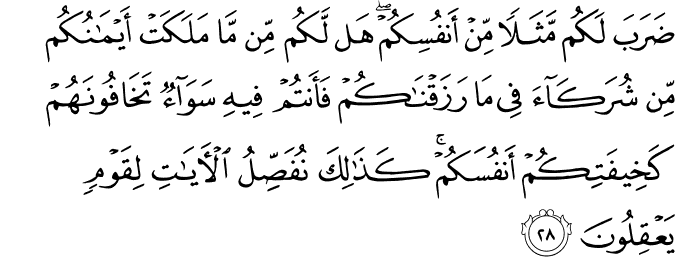 ضَرَبَ لَكُم مَّثَلًا مِّنْ أَنفُسِكُمْ ۖ هَل لَّكُم مِّن مَّا مَلَكَتْ أَيْمَـٰنُكُم
مِّن شُرَكَآءَ فِى مَا رَزَقْنَـٰكُمْ فَأَنتُمْ فِيهِ سَوَآءٌ تَخَافُونَهُمْ
كَخِيفَتِكُمْ أَنفُسَكُمْ ۚ كَذَٰلِكَ نُفَصِّلُ ٱلْـَٔايَـٰتِ لِقَوْمٍ
يَعْقِلُونَ ٢٨